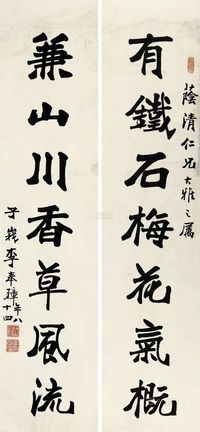 有鐵石梅花氣概
蔭清仁兄大雅之屬
兼山川香草風流
李奉璋年八十四